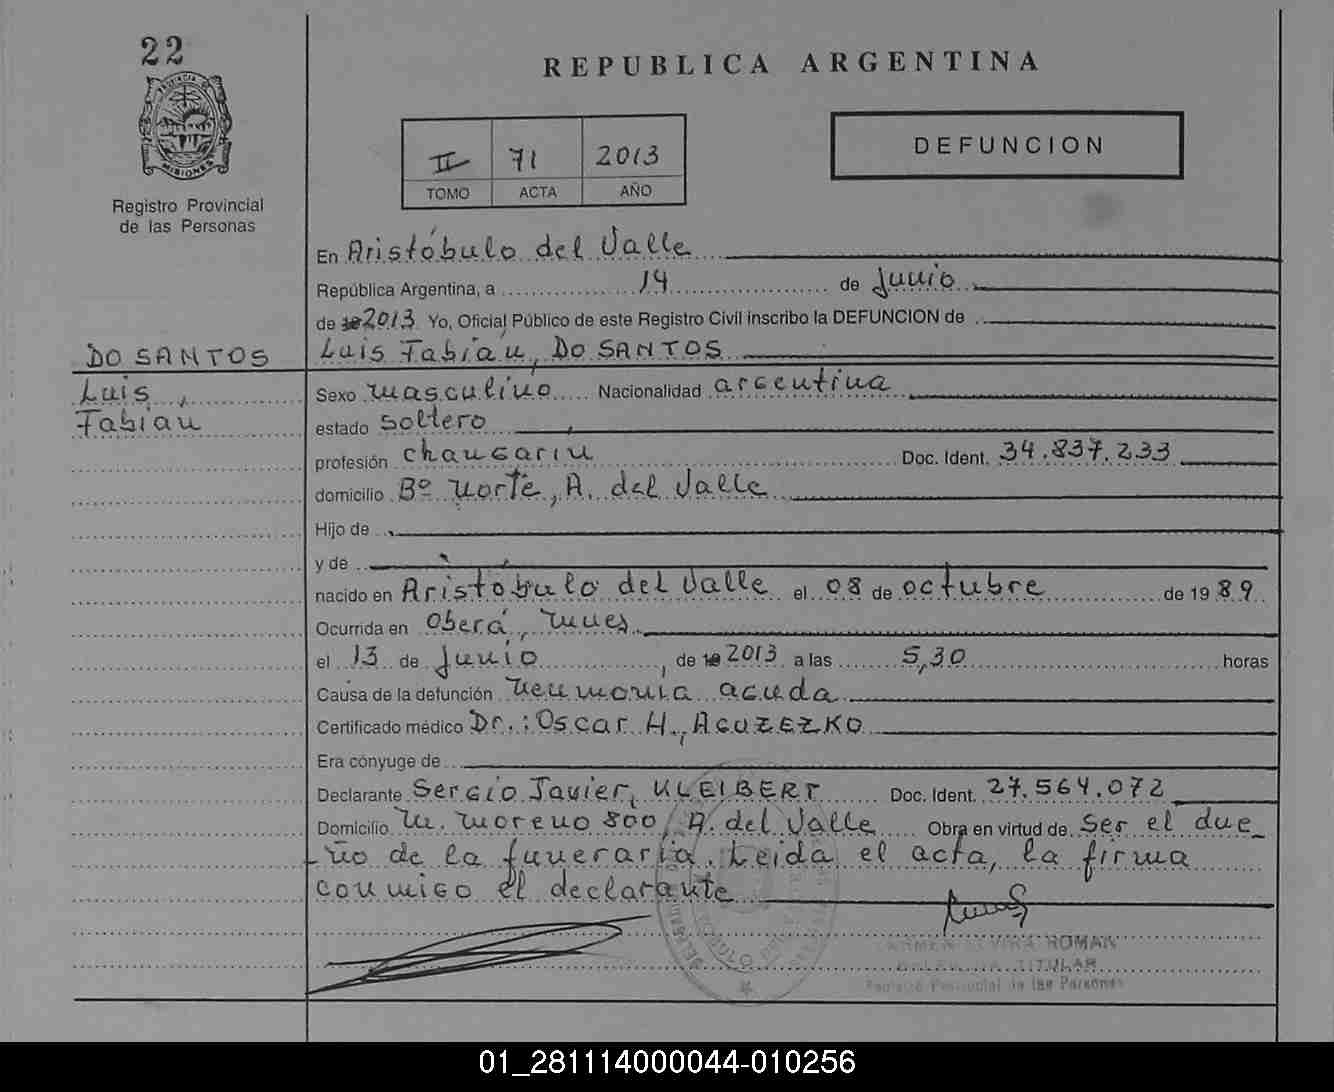 22
PROVINCIA DE
MISIONES
Registro Provincial
de las Personas
REPUBLICA ARGENTINA
II 71 2013
TOMO ACTA AÑO
DEFUNCION
En Aristóbulo del Valle
República Argentina, a 14 de junio
de 2013 Yo, Oficial Público de este Registro Civil inscribo la DEFUNCION de
DO SANTOS Luis Fabián, DO SANTOS
Luis Sexo masculino Nacionalidad argentina
Fabián estado soltero
profesión changarin Doc. Ident. 34.837.233
domicilio Bº Norte, A. del Valle
Hijo de
y de
nacido en Aristóbulo del Valle el 08 de octubre de 1989
Ocurrida en Oberá,
el 13 de junio, de 2013 a las 5,30 horas
Causa de la defunción Neumonia aguda
Certificado médico Dr.: Oscar H., AGUZEZKO
Era cónyuge de
Declarante Sergio Javier, KLEIBERT Doc. Ident. 27.564.072
Domicilio M. Moreno 800, A. del Valle Obra en virtud de ser el due_
_ño de la funeraria. Leida el acta, la firma
conmigo el declarante
ELVIRA ROMAN
TITULAR
Registro Provincial de las Personas
01_281114000044-010256